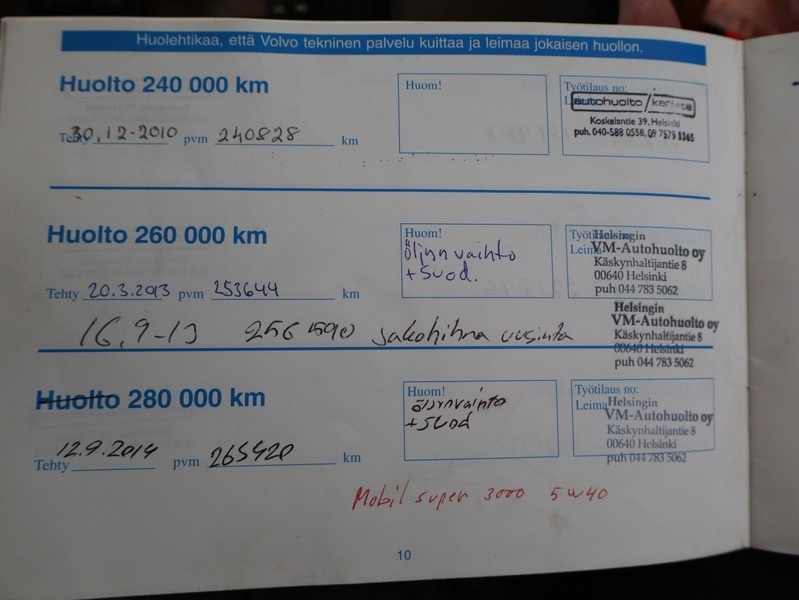 Huolehtikaa, että Volvo tekninen palvelu kuittaa ja leimaa jokaisen huollon.
Huolto 240 000 km
Huom!
Työtilaus no:
autohuolto
Koskelantie 39, Helsinki
puh. 040-588 0558, 09 7579 3345
Tehty 30.12-2010 pvm 240828 km
Huolto 260 000 km
Huom!
Öljynvaihto
+ Suod.
Työtilaus
Leima
Helsingin
VM-Autohuolto oy
Käskynhaltijantie 8
00640 Helsinki
puh 044 783 5062
Tehty 20.3.2013 pvm 253644 km
16.9-13 256590 jakohihna uusinta
Helsingin
VM-Autohuolto oy
Käskynhaltijantie 8
00640 Helsinki
puh 044 783 5062
Huolto 280 000 km
Huom!
öljynvaihto
+ Suod
Työtilaus no:
Leima
Helsingin
VM-Autohuolto oy
Käskynhaltijantie 8
00640 Helsinki
puh 044 783 5062
Tehty 12.9.2014 pvm 265420 km
Mobil super 3000 5w40
10